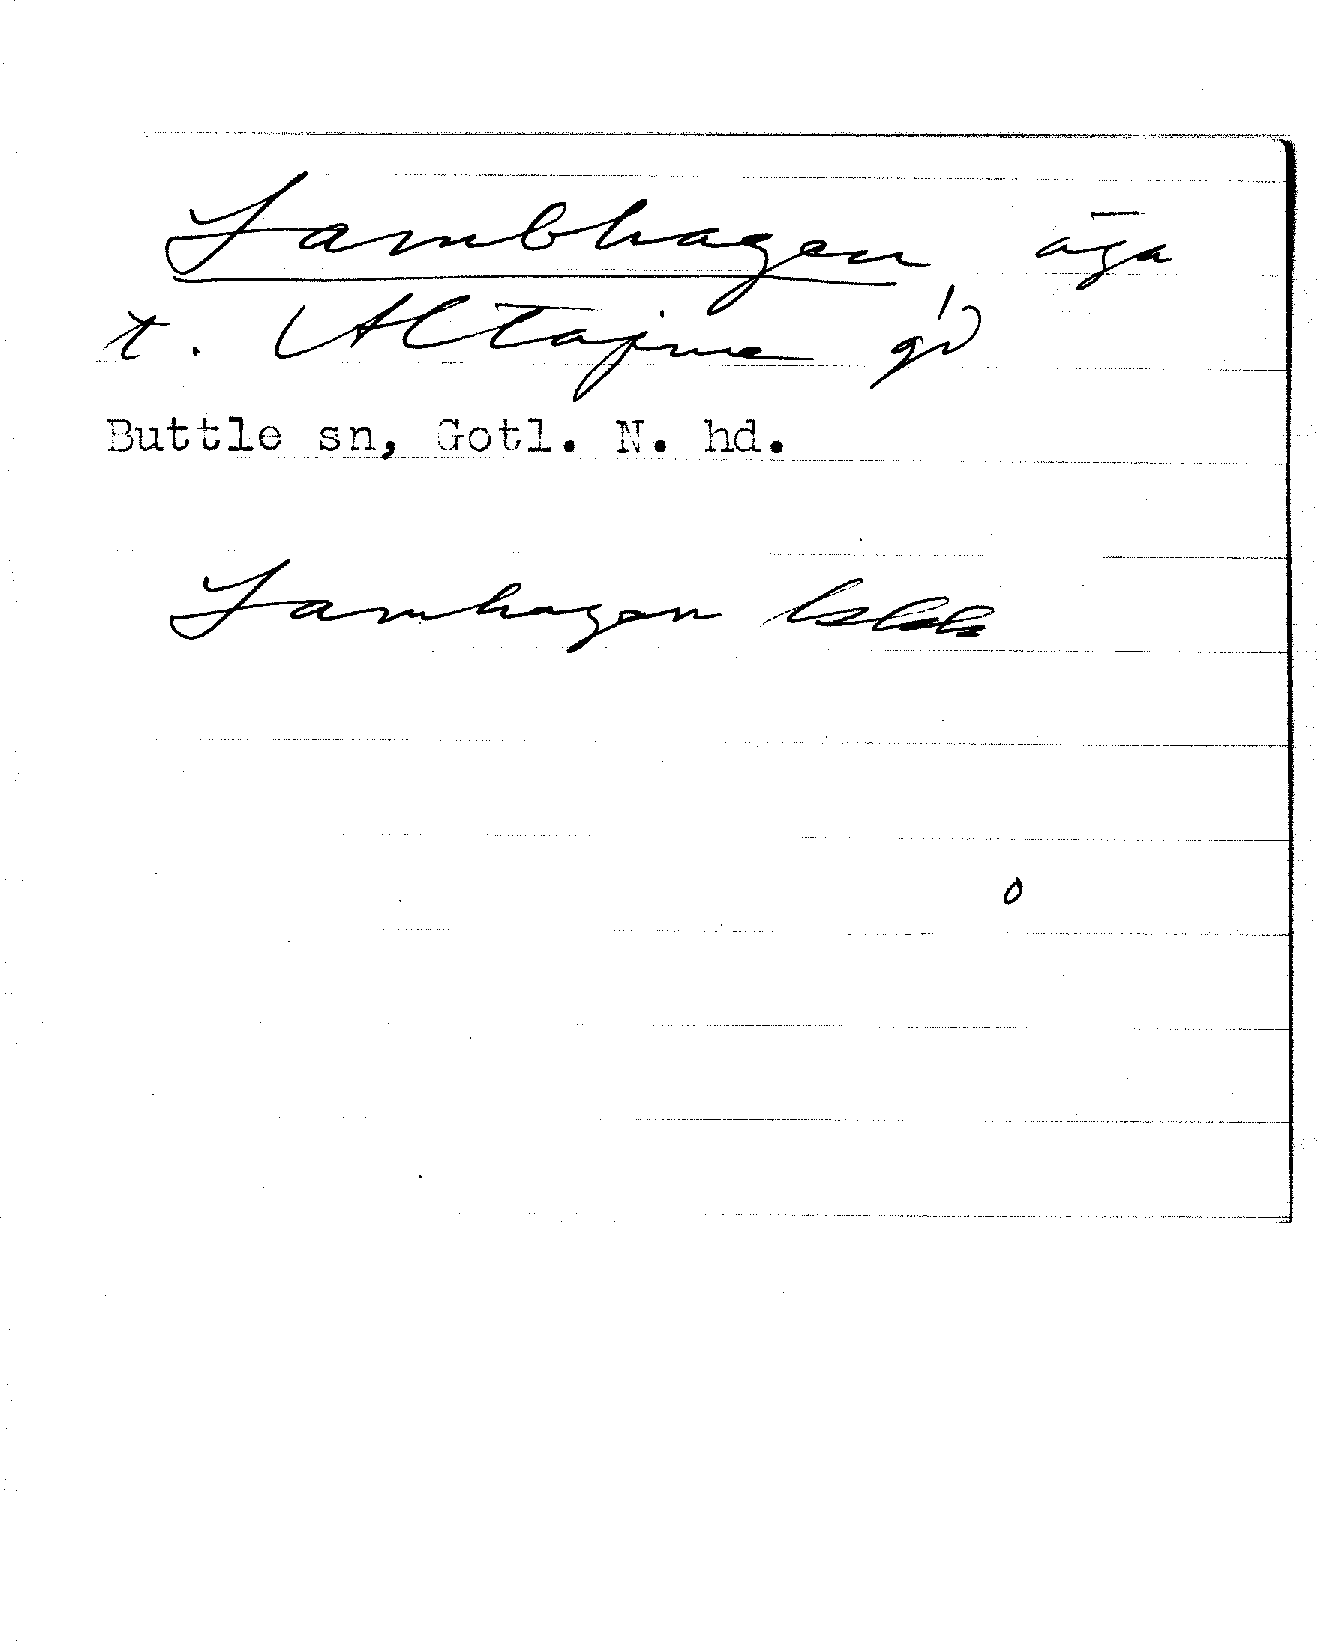 Lambhagen, äga
t. Altajme gd
Buttle sn, Gotl. N. hd.
Lamhagen
o